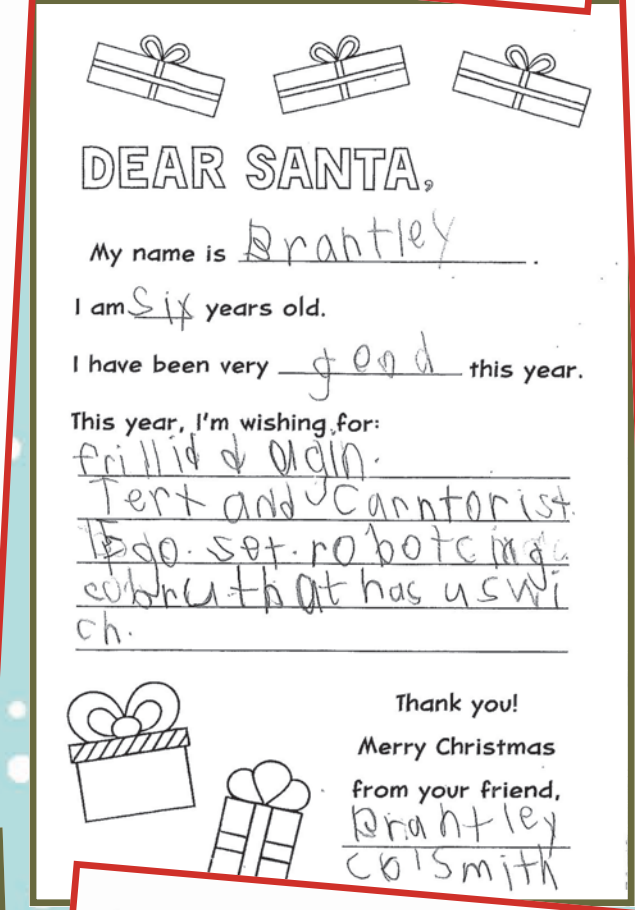 DEAR SANTA,
My name is Brantley.
I am Six years old.
I have been very good this year.
This year, I'm wishing for:
frillid d
Tert and Carntorist.
set. robotc
cobru that has uswi
ch.
Thank you!
Merry Christmas
from your friend,
Brantley
Colsmith